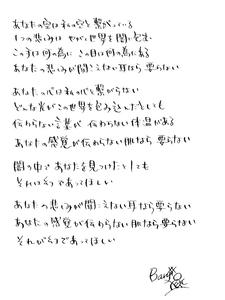 あなたの空は私の空と繋がっている
1つの悲しみは やがて世界を闇に包む
この手は何の為に この目は何の為にある
あなたの悲しみが聞こえない耳なら要らない
あなたの心は私の心と繋がらない
どんな光がこの世界を包み込んだとしても
伝わらない言葉が 伝わらない体温がある
あなたの感覚が伝わらない肌なら 要らない
闇の中で あなたを見つけたとしても
それは幻であってほしい
あなたの悲しみが聞こえない耳なら要らない
あなたの感覚が伝わらない肌なら要らない
それが幻であってほしい